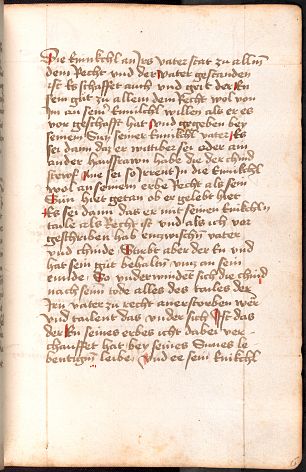 Die Eninckll an Irs vater stat zu allm
dem Recht vnd der vater gestanden
ist Er schaffet auch vnd geit der En
sein gut zu allem dem Recht wol von
Im an sein Eninckll willen als er es
vor geschafft hat vnd gegeben bey
seinem Sun seiner Eninckll vater Es
sei dann daz er wittiber sei oder ain
ander hausfrawn habe die der chind
sei so Jrrent In die Eninckll
wol an seinem erbe Recht als sein
Sun hiet getan ob er gelebt hiet
Es sei dann das er mit seinen Enickln
taile als Recht ist vnd als ich vor
geschriben hab enzwischn vater
vnd chinde Stirbt aber der En vnd
hat sein gut behaltn vncz an sein
ennde So vnderwindet sich die chind
nach seim tode alles des tailes der
Irn vater zu recht anerstorben wer
vnd tailent das vnder sich Ist das
der En seines erbes icht dabei ver-
chauffet hat bey seines Sunes le
bentigm leibe vnd ee sein Enickhl